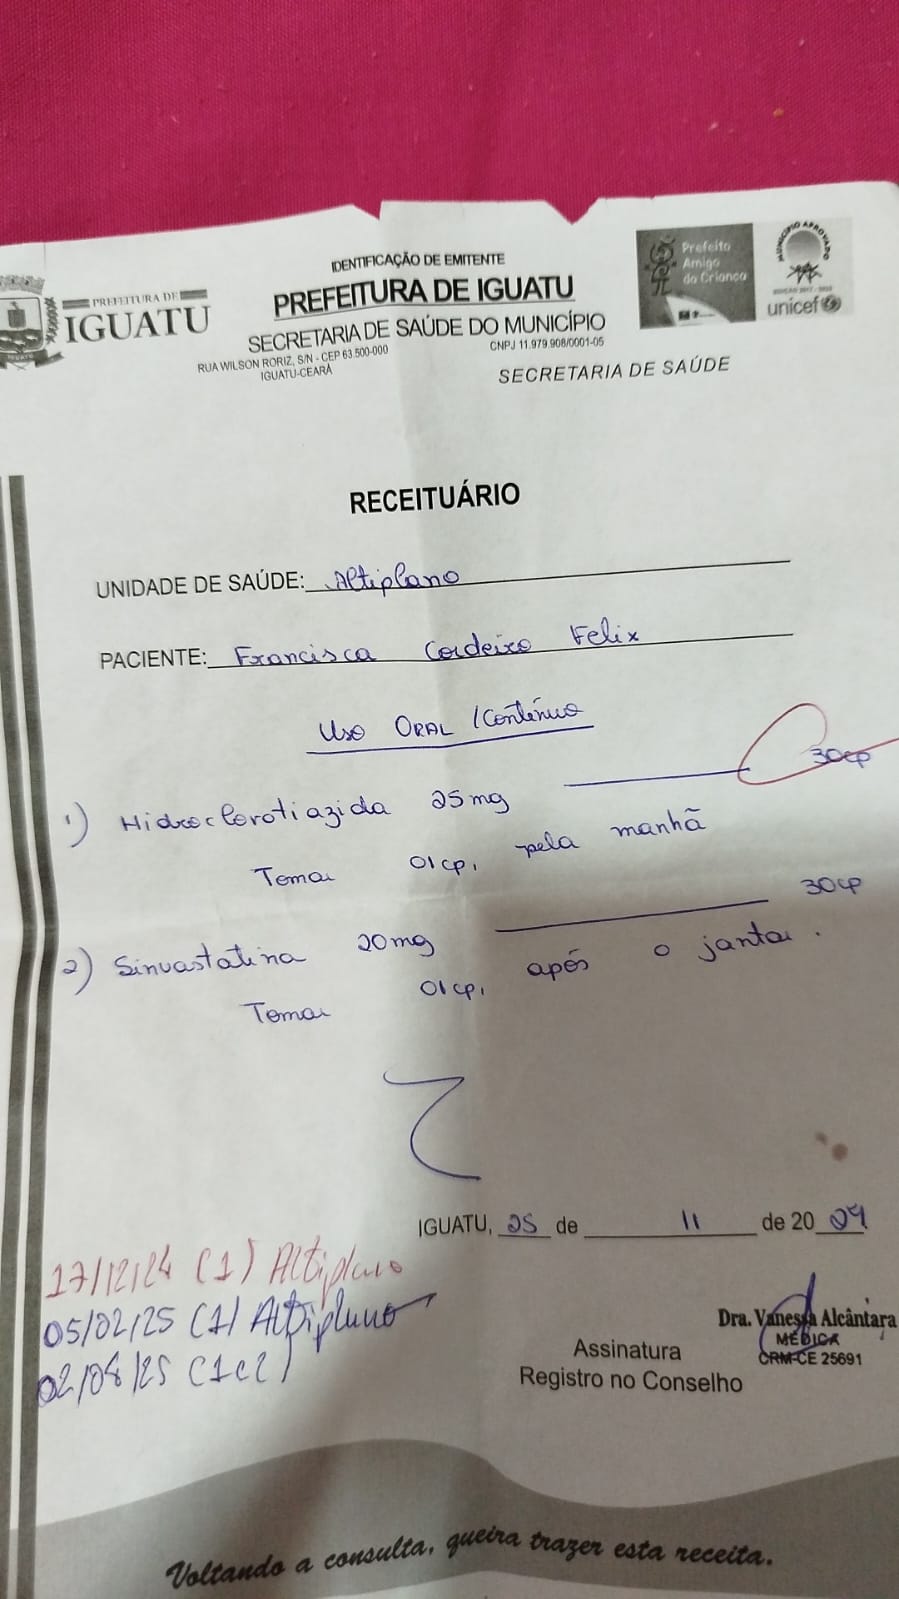 IDENTIFICAÇÃO DE EMITENTE
PREFEITURA DE IGUATU
SECRETARIA DE SAÚDE DO MUNICÍPIO
RUA WILSON RORIZ, S/N - CEP 63.500-000
CNPJ 11.979.908/0001-05
IGUATU-CEARÁ
PREFEITURA DE
IGUATU
Prefeito
Amigo
da Criança
MUNICÍPIO APROVADO
unicef
SECRETARIA DE SAÚDE
RECEITUÁRIO
UNIDADE DE SAÚDE: Altiplano
PACIENTE: Francisca Cordeiro Felix
Uso ORAL / Contínuo
1) Hidroclorotiazida 25mg 30cp
Tomar 01cp, pela manhã
2) Sinvastatina 20mg 30cp
Tomar 01cp, após o jantar.
IGUATU, 25 de 11 de 2024
17/12/24 (1) Altiplano
05/02/25 (1) Altiplano
02/08/25 (1e2)
Dra. Vanessa Alcântara
MÉDICA
CRM-CE 25691
Assinatura
Registro no Conselho
Voltando a consulta, queira trazer esta receita.